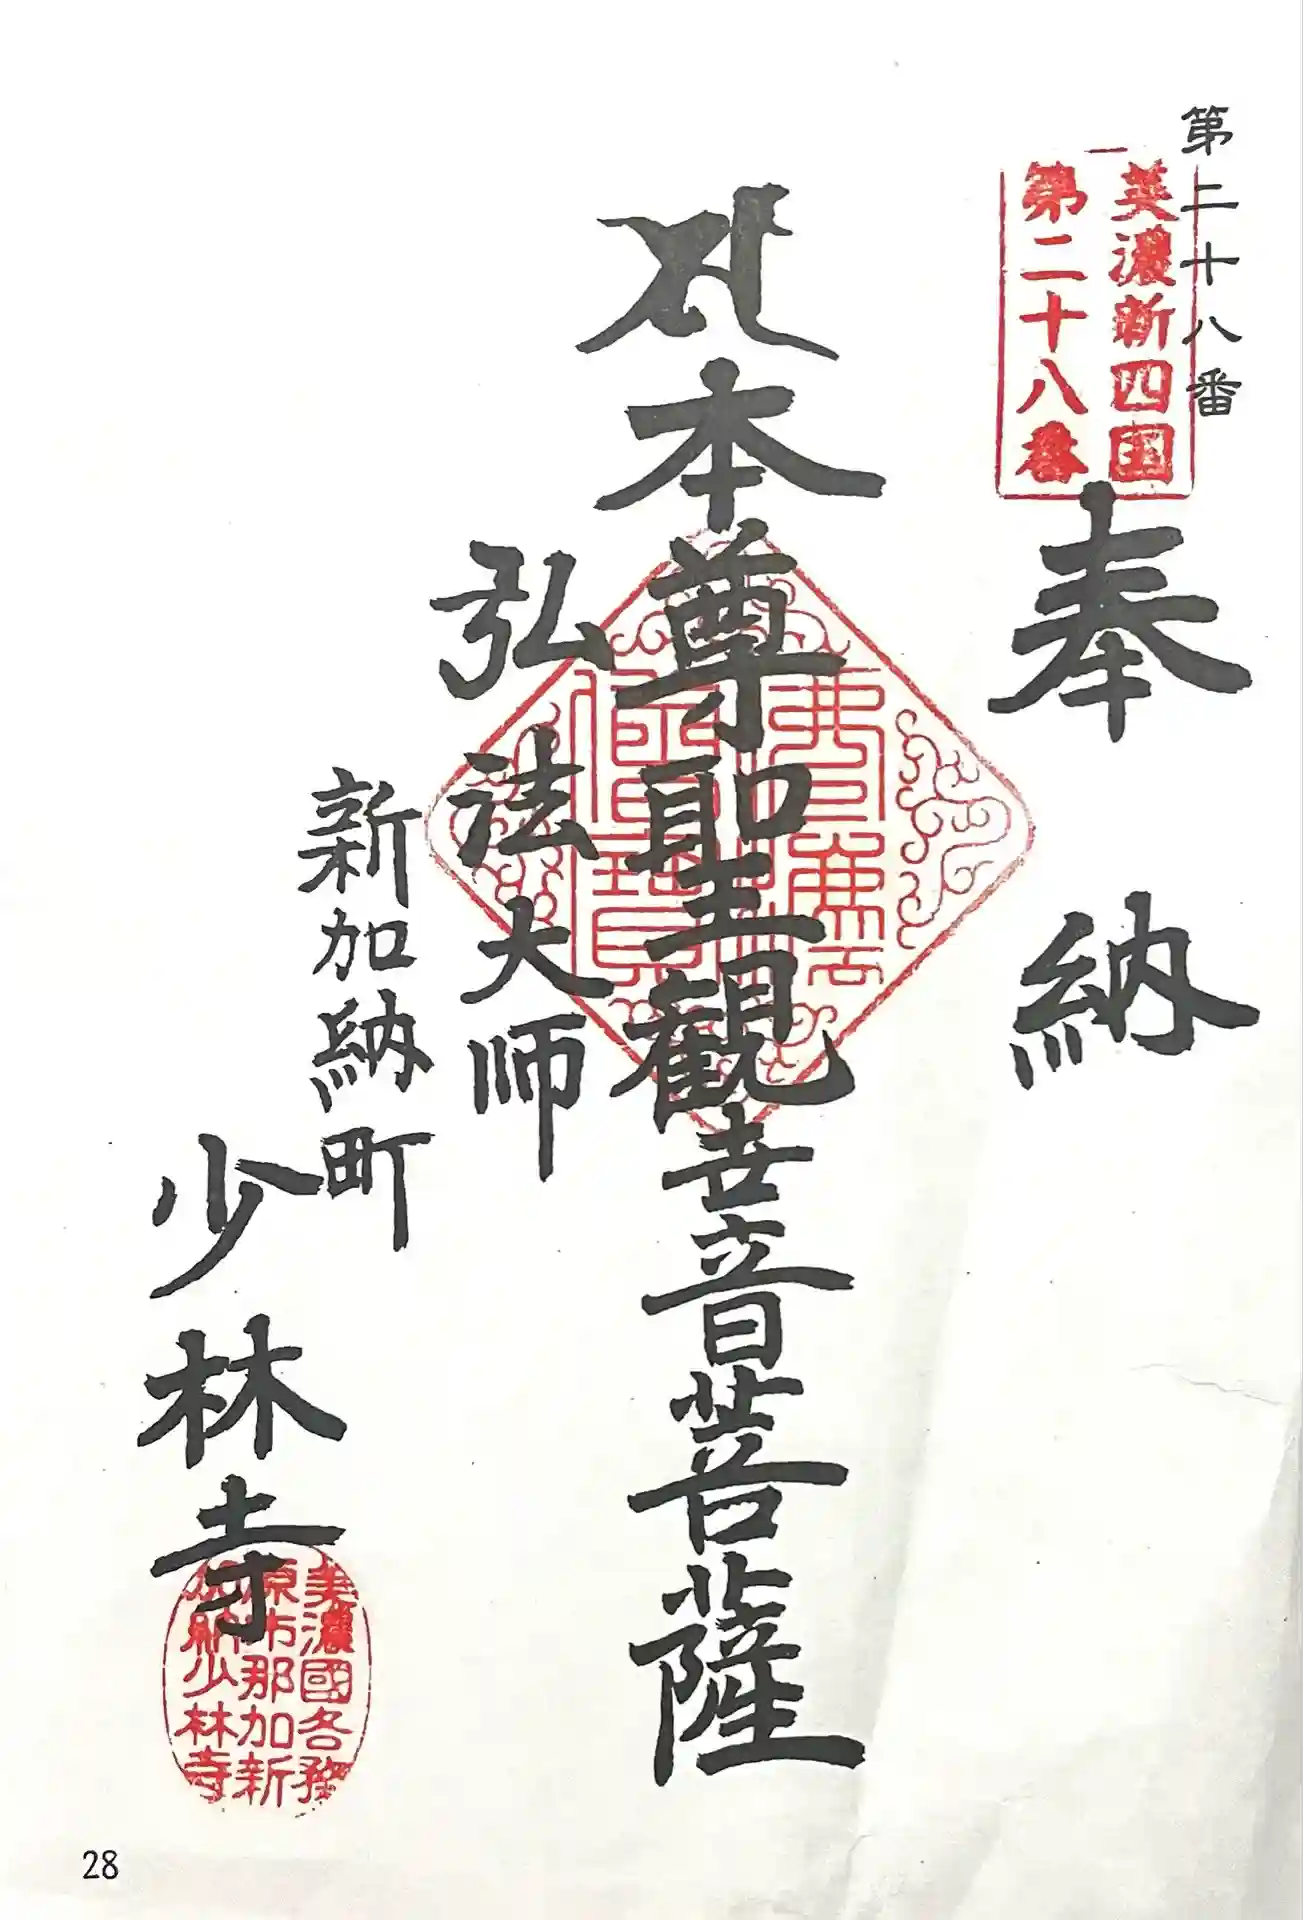 第二十八番
美濃新四国
第二十八番
奉納
本尊聖観世音菩薩
弘法大师
新加納町
少林寺
美濃國各務
原市那加新
加納少林寺
28